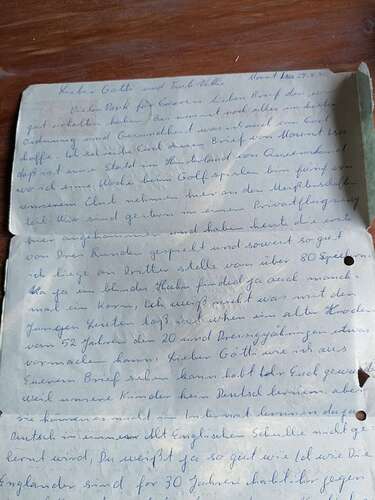 Lieber Götti und Frieda Mount Isa 29.8.
Vielen Dank für Eueren lieben Brief den wir
gut erhalten haben. Bei uns ist noch alles in bester
Ordnung und Gesundheit was ich auch von Euch
hoffe. Ich schreibe Euch diesen Brief von Mount Isa
daß ist eine Stadt im Hinterland von Queensland
wo ich eine Woche beim Golf spielen bin fünf von
unserem Club nehmen hier an den Meisterschaften
teil. Wir sind gestern in einem Privatflugzeug
hier angekommen und haben heute die erste
von Drei Runden gespielt und soweit so gut
ich liege an Dritter stelle von über 80 Spielern.
Na ja ein blindes Huhn findet ja auch manch-
mal ein Korn. Ich weiß nicht was mit den
Jungen Leuten loß ist wenn ein alter
von 52 Jahren den 20 und Dreissigjährigen etwas
vormachen kann. Lieber Götti wie ich aus
Euerem Brief sehen kann habt Ihr Euch gewundert
weil unsere Kinder kein Deutsch lernen aber
sie können es nicht im Internat lernen da
Deutsch in einer Alt Englischen Schule nicht ge
lernt wird. Du weißt ja so gut wie Ich wie Die
Engländer sind vor 30 Jahren habt ihr gegen